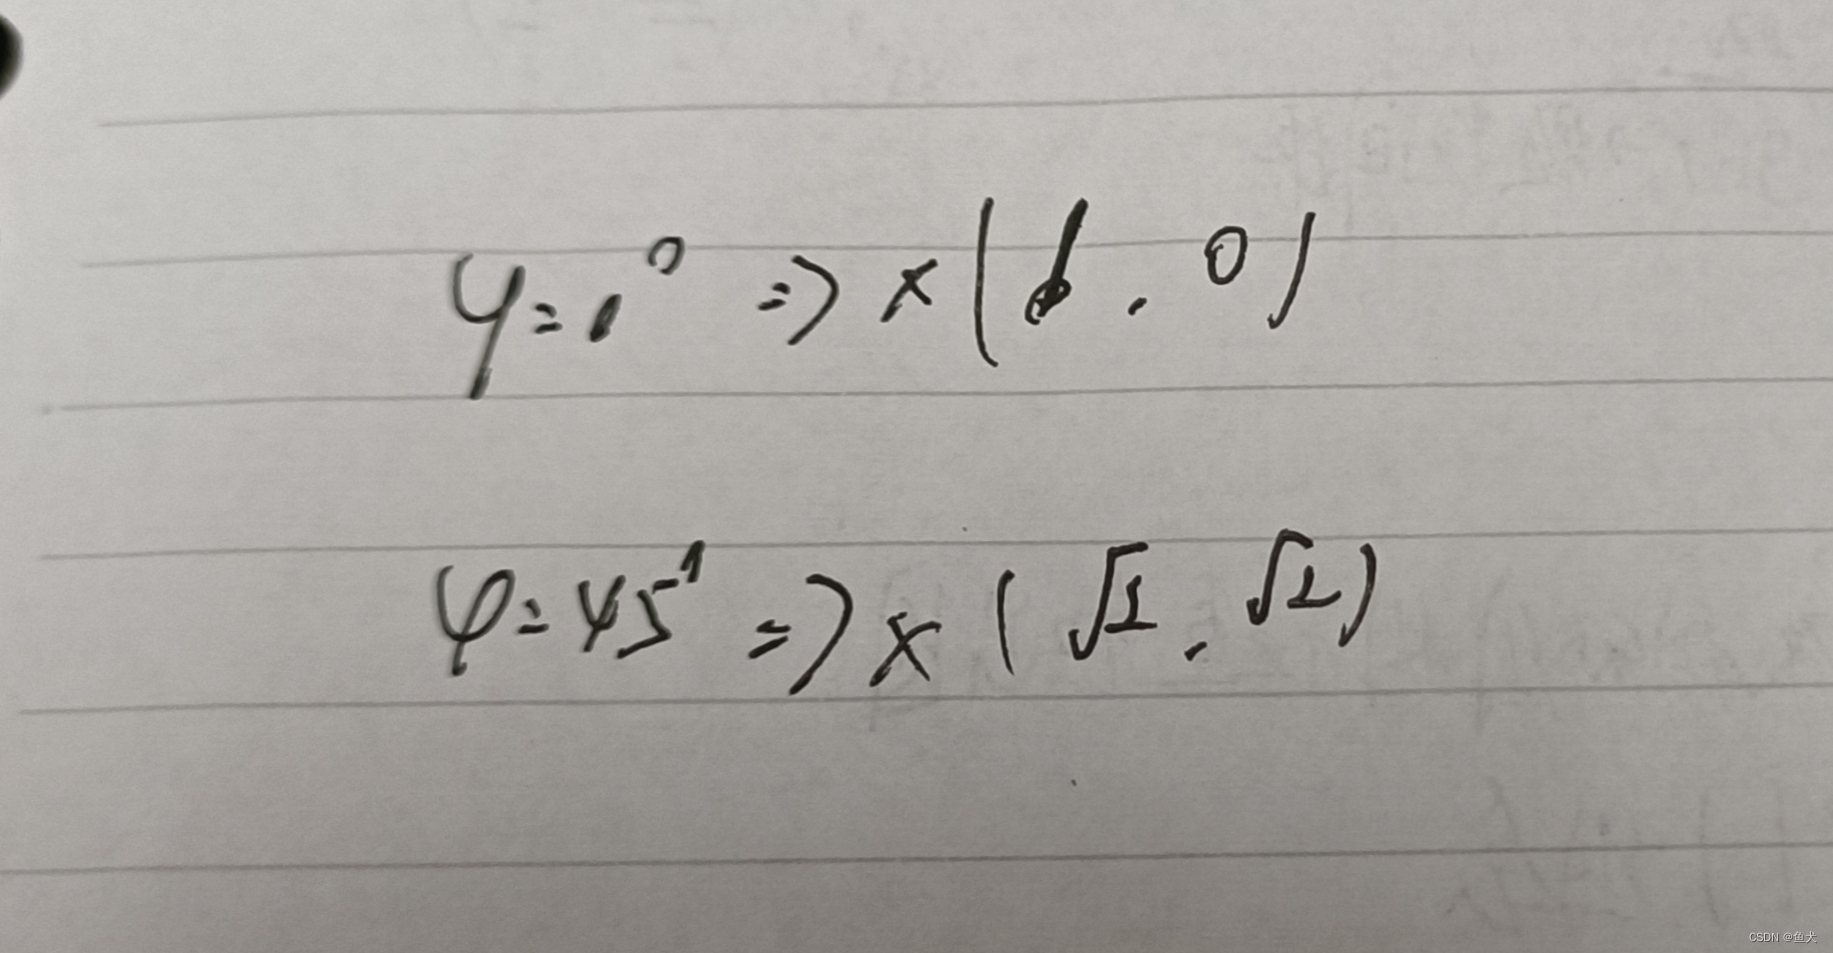 φ=0° => x(1, 0)
φ=45° => x(√2, √2)
CSDN @鱼犬